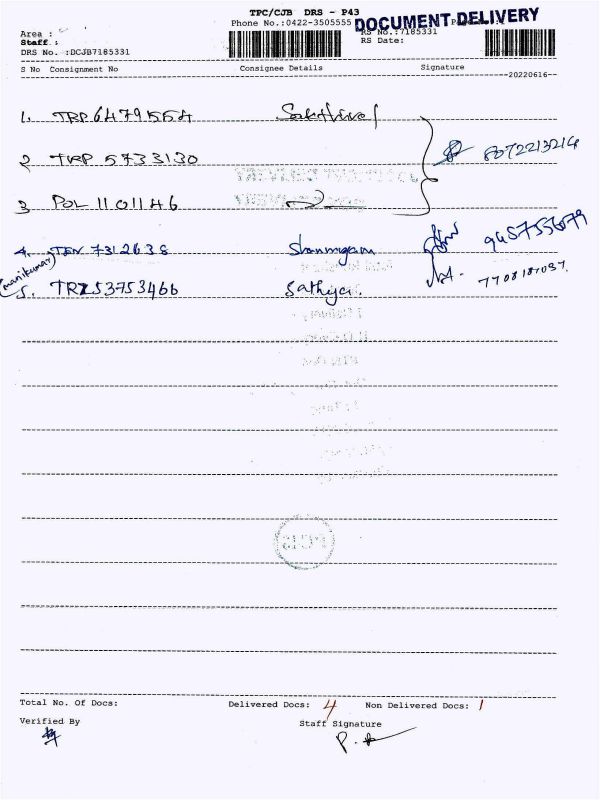 TPC/CJB DRS - P43
Phone No.:0422-3505555
DOCUMENT DELIVERY
Area :
RS No.:7185331
Staff :
RS Date:
DRS No. :DCJB7185331
S No Consignment No Consignee Details Signature
20220616
1. TRP6479554 Sakthivel
2 TRP 5733130 8072213214
3 POL 1101146
4. TEN 7312638 Shanmugam
(manikumar)
5. TRZ53753466 Sathya. 7708187097.
Total No. Of Docs: Delivered Docs: 4 Non Delivered Docs: 1
Verified By Staff Signature